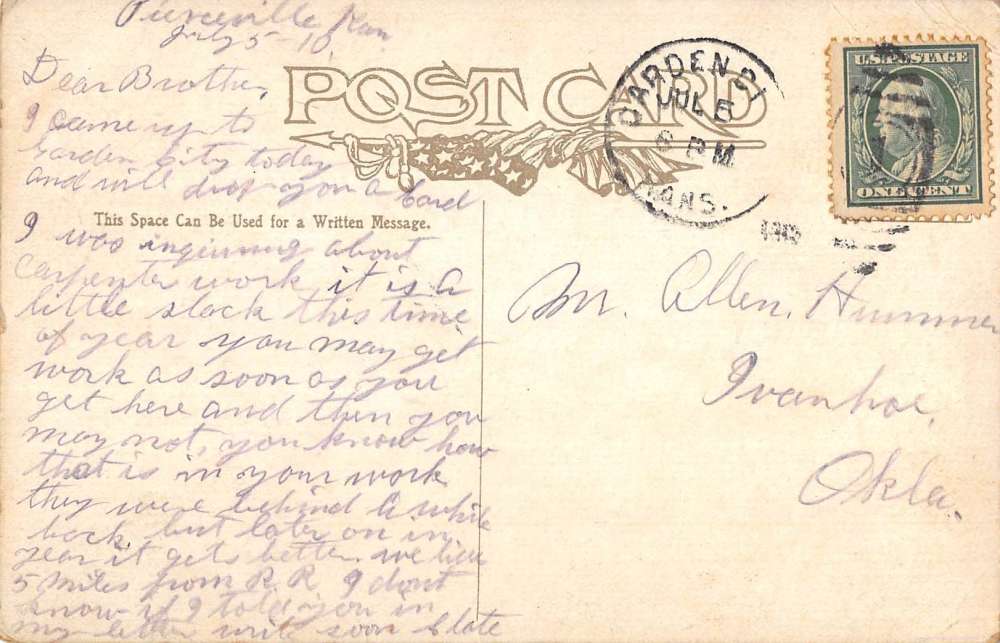 Pierceville Kan
July 5-10
Dear Brother,
I came up to
Garden City today
and will drop you a Card
I was inquiring about
Carpenter work it is a
little slack this time
of year you may get
work as soon as you
get here and then you
may not, you know how
that is in your work
they were behind a while
back but later on in
year it gets better. we live
5 miles from R.R. I dont
know if I told you in
my letter write soon
POST CARD
This Space Can Be Used for a Written Message.
GARDEN CI
JUL 5
6 PM
KANS.
U.S. POSTAGE
ONE CENT
Mr. Allen, Hummer
Ivanhoe,
Okla.